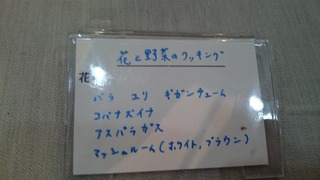 花と野菜のクッキング
花
バラ ユリ ギガンチューム
コバナズイナ
アスパラガス
マッシュルーム(ホワイト、ブラウン)